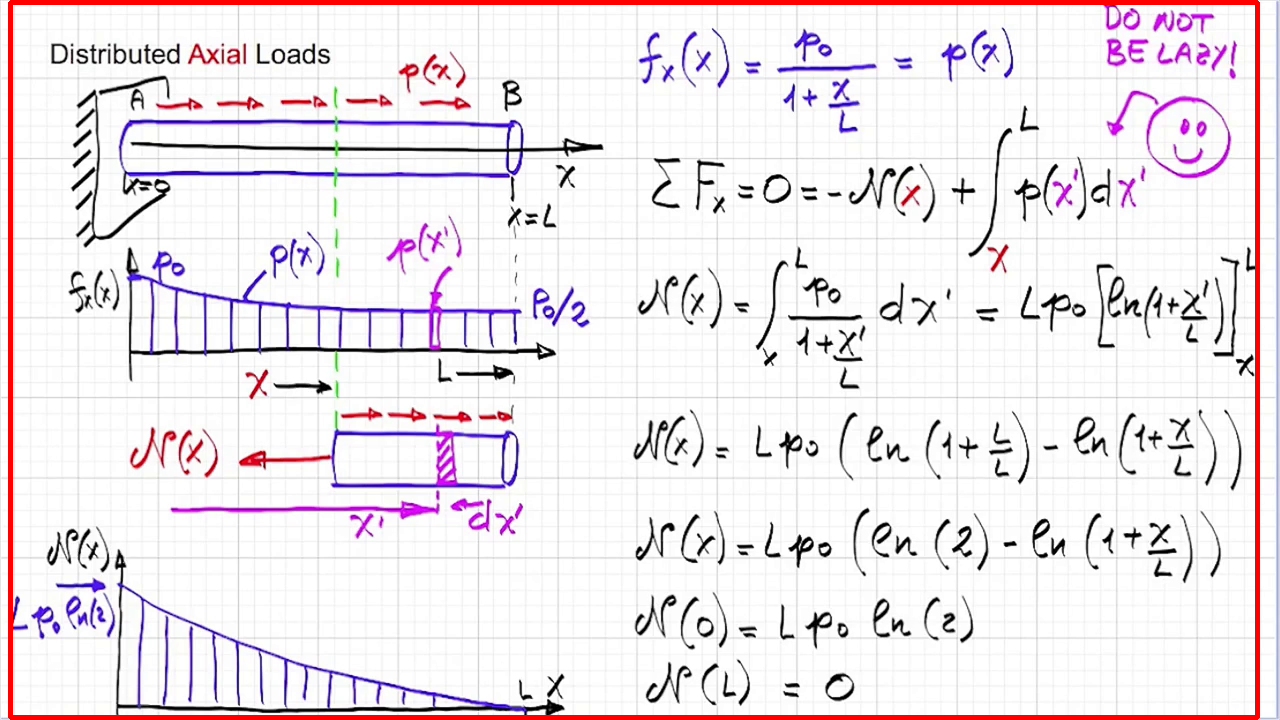 Distributed Axial Loads
p(x)
A
B
x=0
x
x=L
fₓ(x)
p₀
p(x)
p(x')
p₀/2
x
L
N(x)
x'
dx'
N(x)
L p₀ ln(2)
L x
DO NOT
BE LAZY!
fₓ(x) = p₀ / (1 + x/L) = p(x)
∑Fₓ = 0 = -N(x) + ∫ₓᴸ p(x')dx'
N(x) = ∫ₓᴸ p₀ / (1 + x'/L) dx' = L p₀ [ln(1 + x'/L)]ₓᴸ
N(x) = L p₀ (ln(1 + L/L) - ln(1 + x/L))
N(x) = L p₀ (ln(2) - ln(1 + x/L))
N(0) = L p₀ ln(2)
N(L) = 0